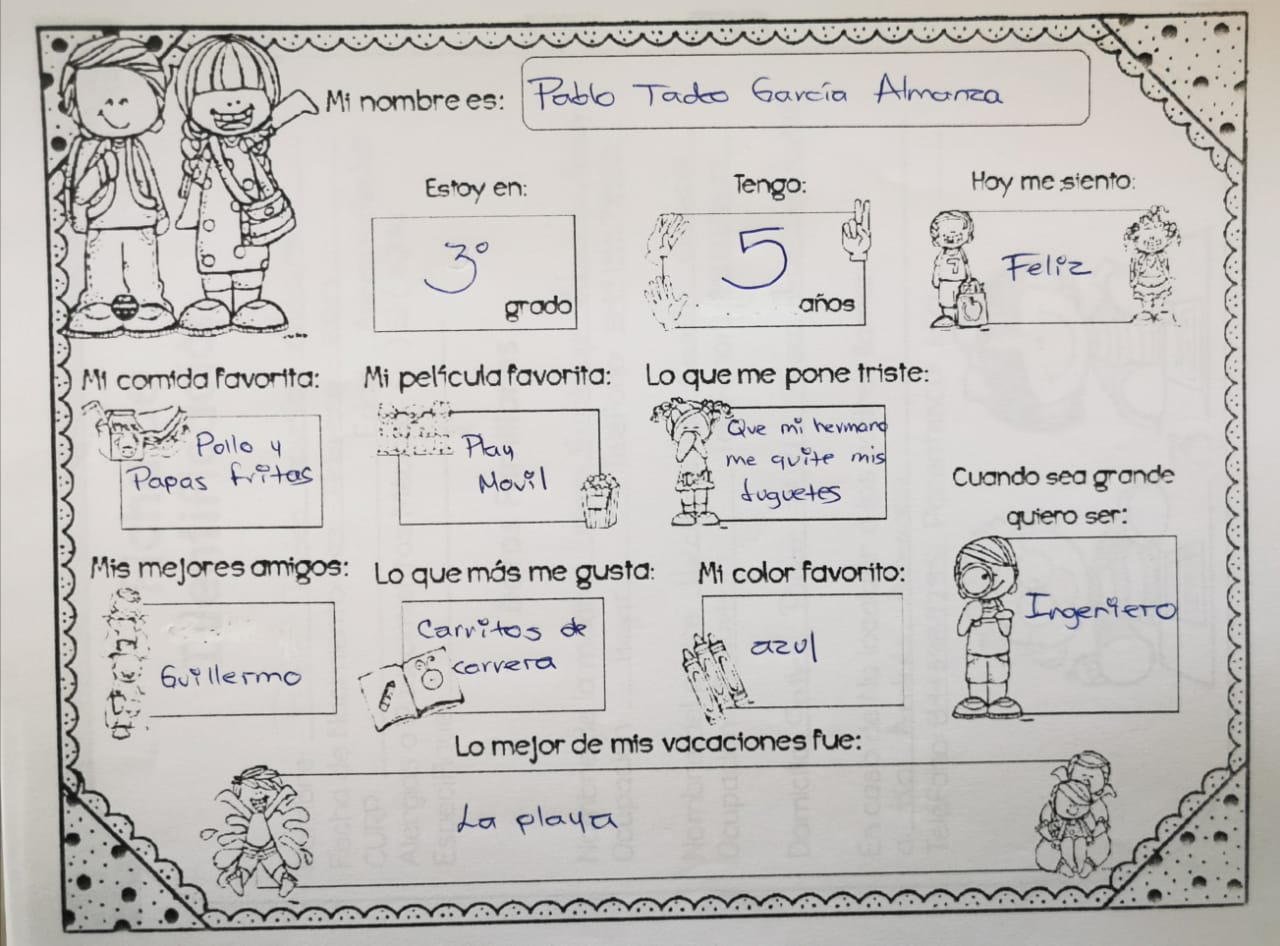 Mi nombre es: Pablo Tadeo García Almanza
Estoy en:
3° grado
Tengo:
5 años
Hoy me siento:
Feliz
Mi comida favorita:
Pollo y
Papas fritas
Mi película favorita:
Play
Movil
Lo que me pone triste:
Que mi hermano
me quite mis
juguetes
Cuando sea grande
quiero ser:
Ingeniero
Mis mejores amigos:
Guillermo
Lo que más me gusta:
Carritos de
carrera
Mi color favorito:
azul
Lo mejor de mis vacaciones fue:
La playa